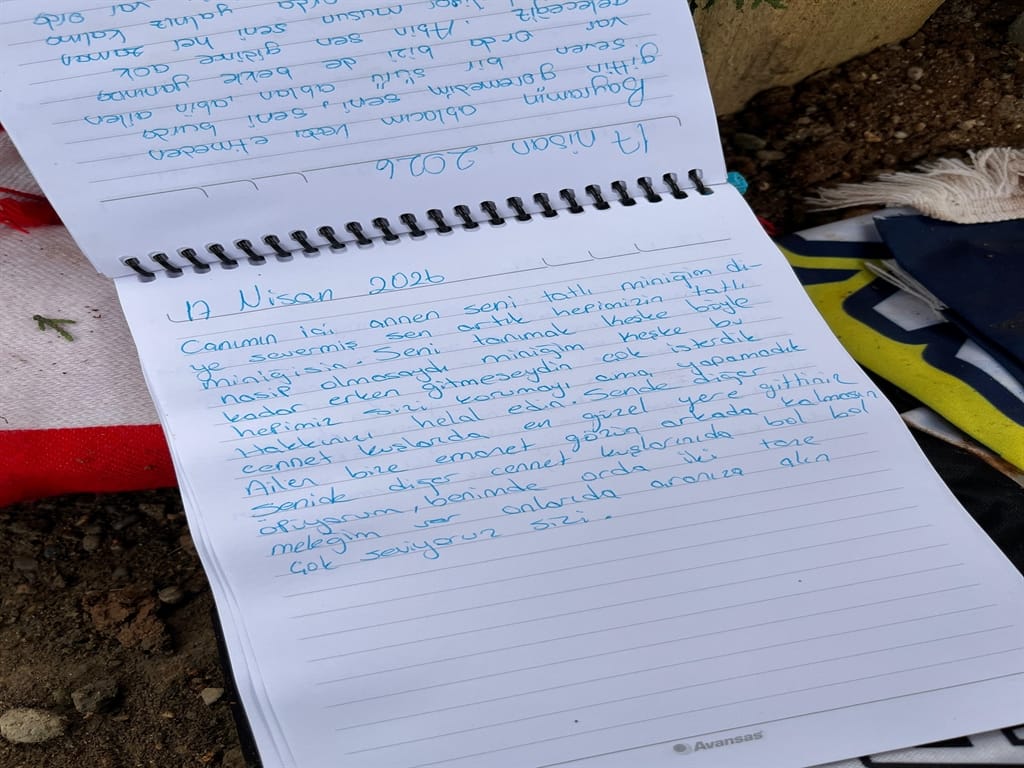 17 Nisan 2026
Bayramın ablacım veda etmeden
gittin göremedim seni, seni burda
seven bir sürü ablan, abin ailen
var orda bizi de bekle yanına
geleceğiz. Abin sen çok
musun seni her zaman
orda yalnız kalma
var orda
17 Nisan 2026
Canımın içi annen seni tatlı miniğim di-
ye severmiş sen artık hepimizin tatlı
miniğisin. Seni tanımak keşke böyle
nasip olmasaydı miniğim keşke bu
kadar erken gitmeseydin çok isterdik
hepimiz sizi korumayı ama yapamadık
Hakkınızı helal edin. Sende diğer
cennet kuşlarıda en güzel yere gittiniz
Ailen bize emanet gözün arkada kalmasın
Senide diğer cennet kuşlarınıda bol bol
öpüyorum, benimde orda iki taze
meleğim var onlarıda aranıza alın
Çok seviyoruz sizi.
Avansas